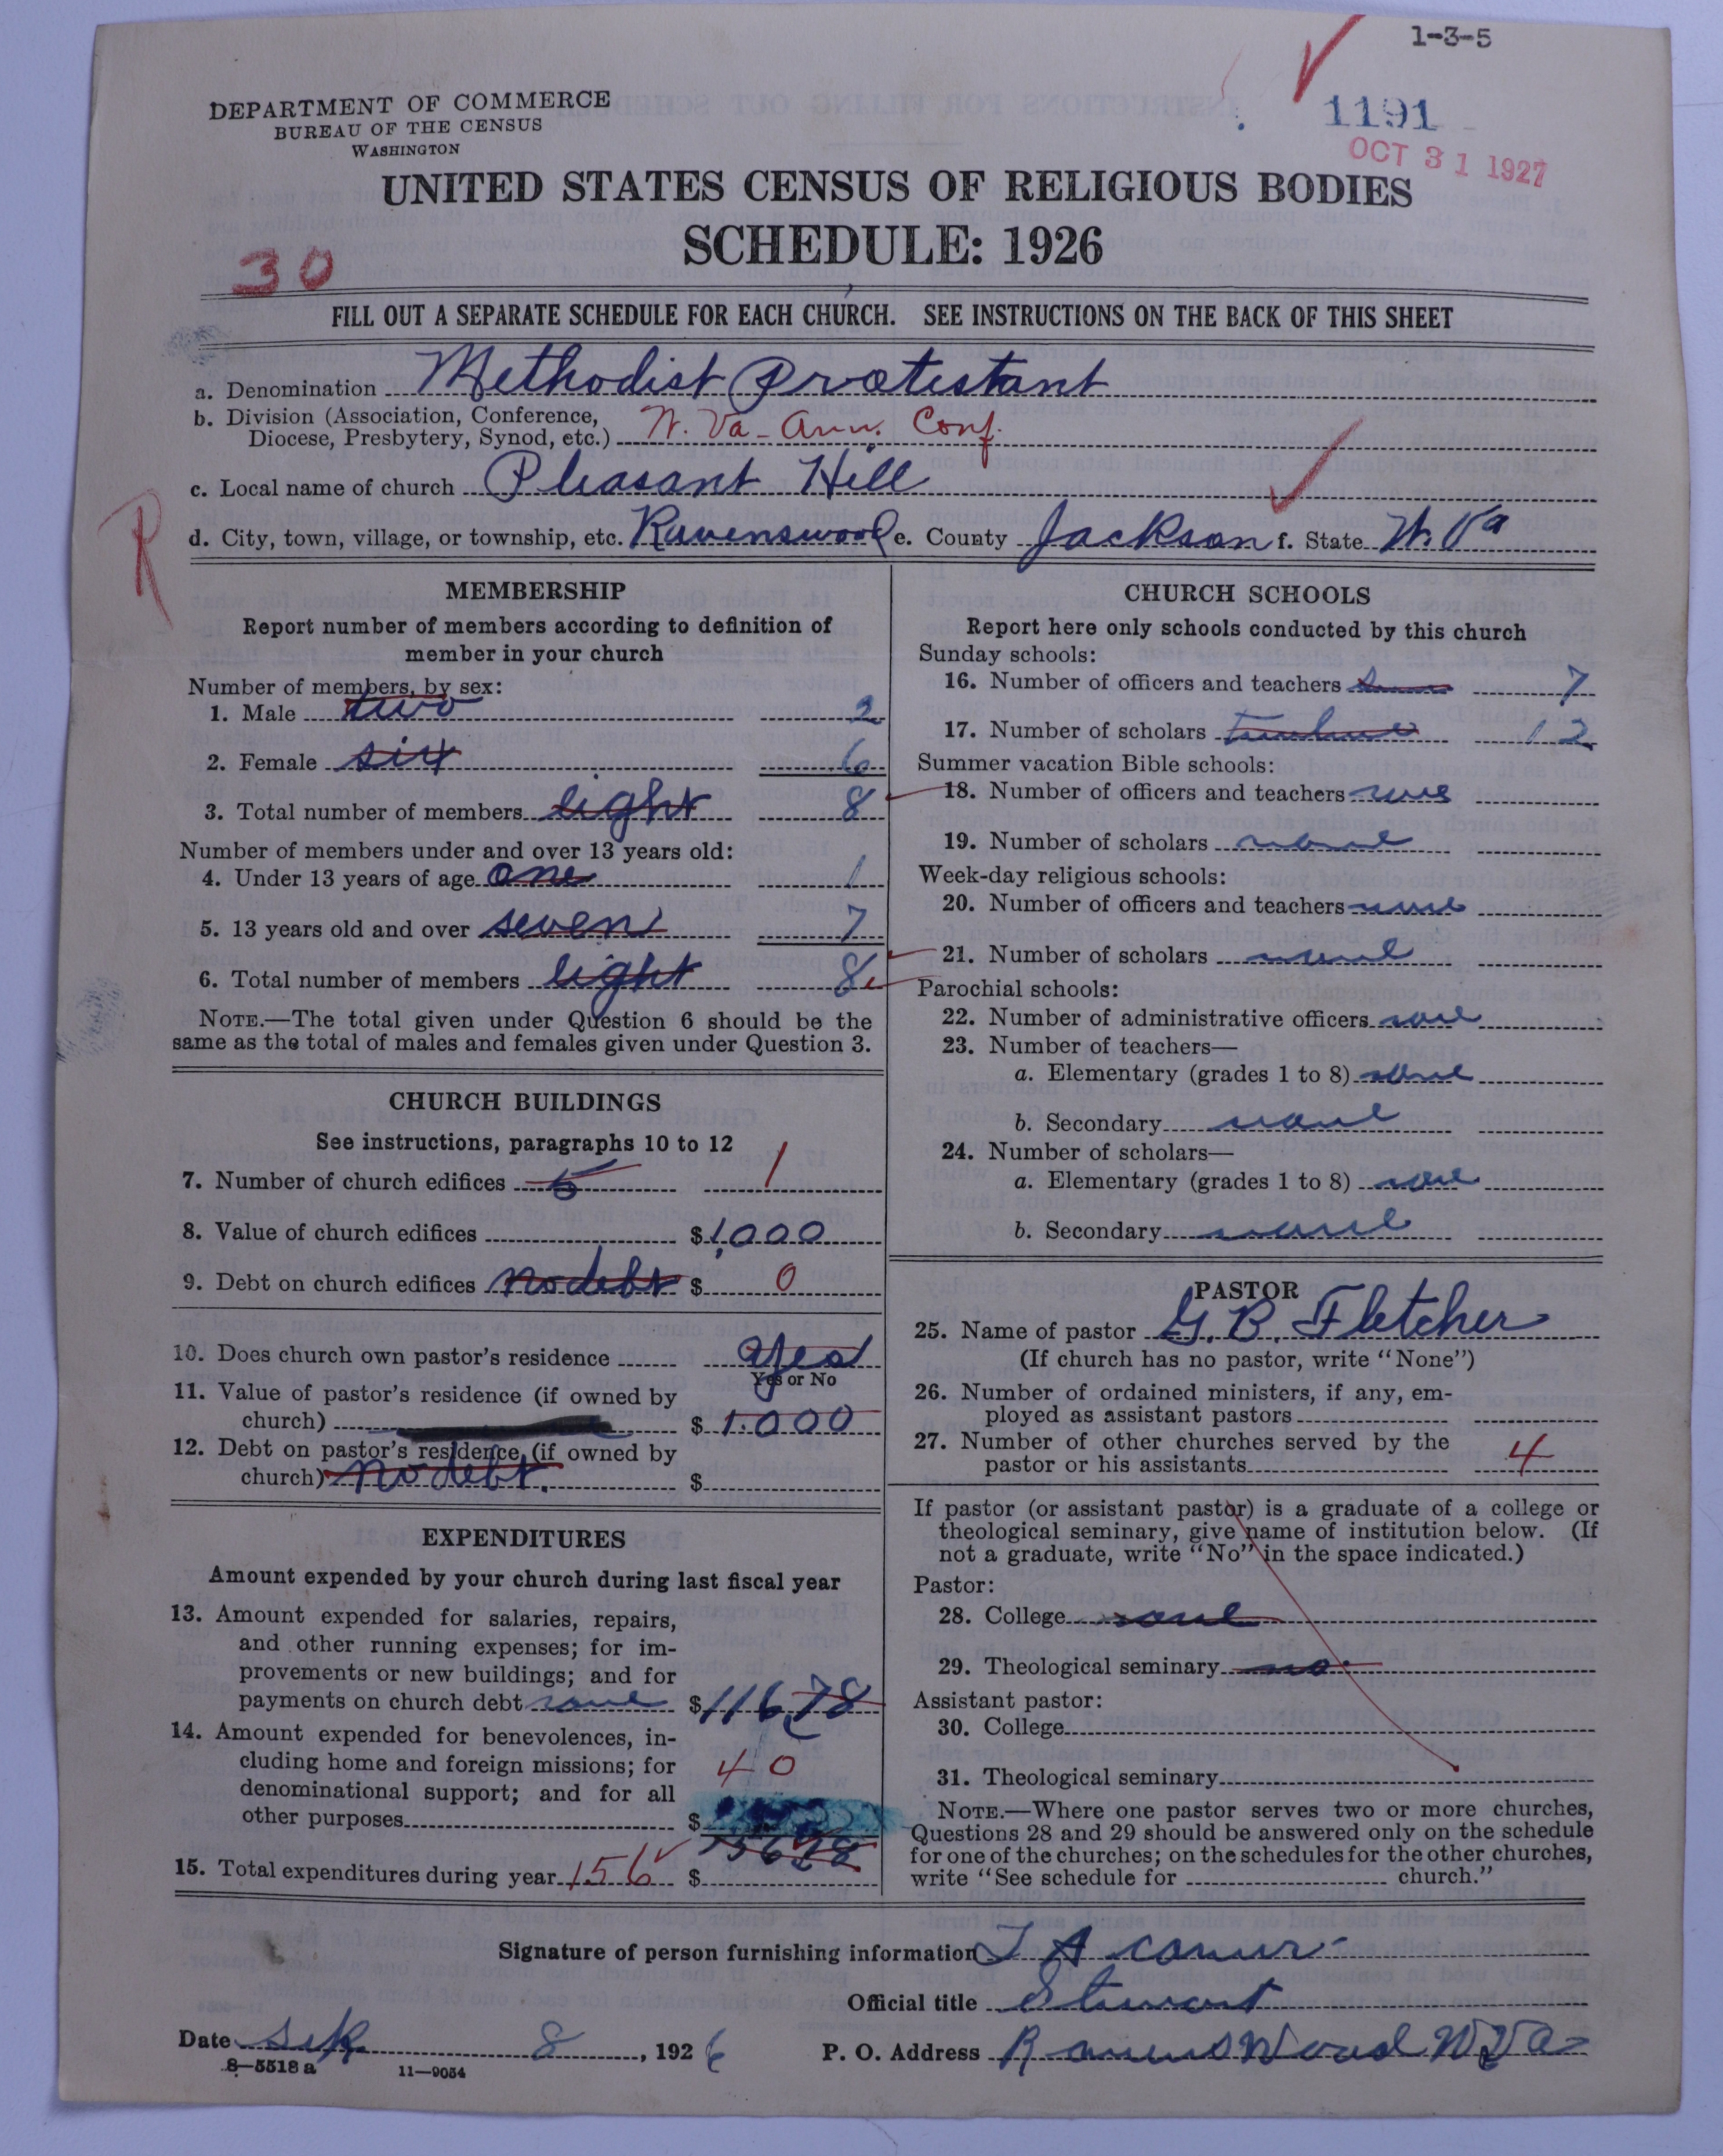 1-3-5
1191
OCT 31 1927
DEPARTMENT OF COMMERCE
BUREAU OF THE CENSUS
WASHINGTON
UNITED STATES CENSUS OF RELIGIOUS BODIES
SCHEDULE: 1926
30
FILL OUT A SEPARATE SCHEDULE FOR EACH CHURCH. SEE INSTRUCTIONS ON THE BACK OF THIS SHEET
a. Denomination Methodist Protestant
b. Division (Association, Conference,
Diocese, Presbytery, Synod, etc.) W. Va - Ann. Conf.
c. Local name of church Pleasant Hill
R
d. City, town, village, or township, etc. Ravenswood e. County Jackson f. State W. Va
MEMBERSHIP
Report number of members according to definition of
member in your church
Number of members, by sex:
1. Male two 2
2. Female six 6
3. Total number of members eight 8
Number of members under and over 13 years old:
4. Under 13 years of age one 1
5. 13 years old and over seven 7
6. Total number of members eight 8
NOTE.—The total given under Question 6 should be the
same as the total of males and females given under Question 3.
CHURCH BUILDINGS
See instructions, paragraphs 10 to 12
7. Number of church edifices 1
8. Value of church edifices $1,000
9. Debt on church edifices no debt $ 0
10. Does church own pastor's residence yes
Yes or No
11. Value of pastor's residence (if owned by
church) $ 1.000
12. Debt on pastor's residence (if owned by
church) no debt. $
EXPENDITURES
Amount expended by your church during last fiscal year
13. Amount expended for salaries, repairs,
and other running expenses; for im-
provements or new buildings; and for
payments on church debt none $116.78
14. Amount expended for benevolences, in-
cluding home and foreign missions; for 40
denominational support; and for all
other purposes $
15. Total expenditures during year 156 $
CHURCH SCHOOLS
Report here only schools conducted by this church
Sunday schools:
16. Number of officers and teachers 7
17. Number of scholars 12
Summer vacation Bible schools:
18. Number of officers and teachers none
19. Number of scholars none
Week-day religious schools:
20. Number of officers and teachers none
21. Number of scholars none
Parochial schools:
22. Number of administrative officers none
23. Number of teachers—
a. Elementary (grades 1 to 8) none
b. Secondary none
24. Number of scholars—
a. Elementary (grades 1 to 8) none
b. Secondary none
PASTOR
25. Name of pastor G. B. Fletcher
(If church has no pastor, write "None")
26. Number of ordained ministers, if any, em-
ployed as assistant pastors
27. Number of other churches served by the
pastor or his assistants 4
If pastor (or assistant pastor) is a graduate of a college or
theological seminary, give name of institution below. (If
not a graduate, write "No" in the space indicated.)
Pastor:
28. College none
29. Theological seminary no
Assistant pastor:
30. College
31. Theological seminary
NOTE.—Where one pastor serves two or more churches,
Questions 28 and 29 should be answered only on the schedule
for one of the churches; on the schedules for the other churches,
write "See schedule for church."
Signature of person furnishing information T A
Official title Stewart
Date 8, 1926 P. O. Address Ravenswood W Va
8—5518 a 11—9054